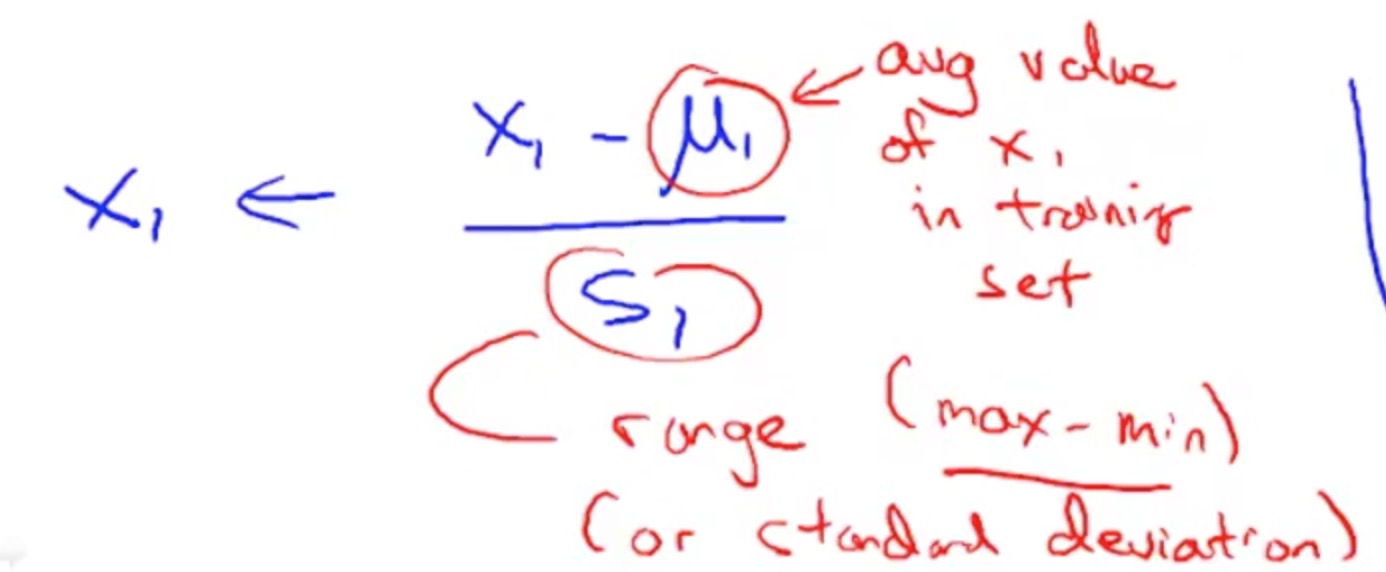 x₁ ← (x₁ - μ₁) / s₁
← avg value
of x₁
in training
set
range (max - min)
(or standard deviation)